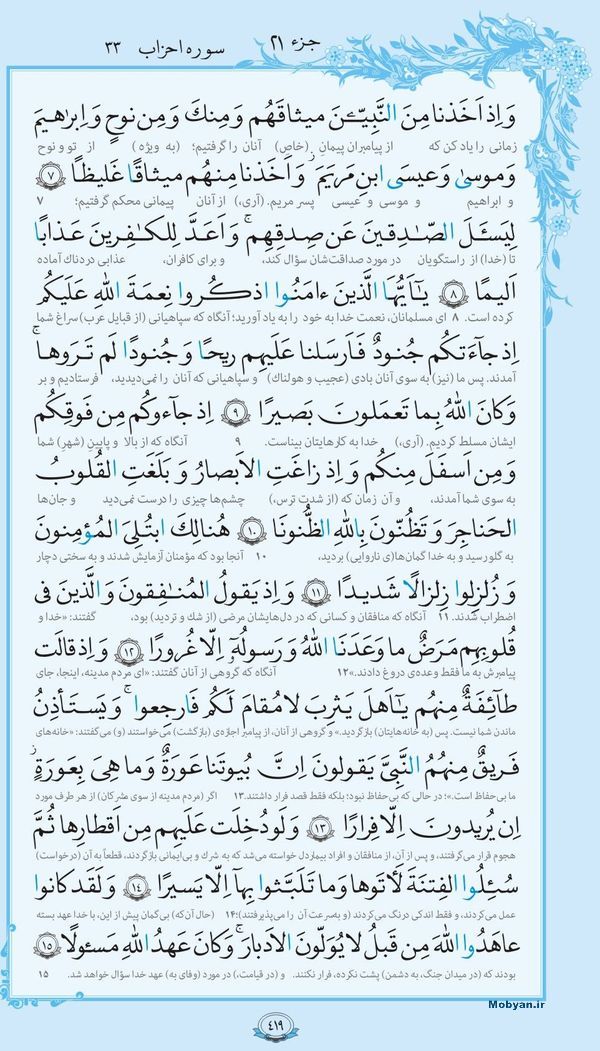 جزء ۲۱ سوره احزاب ۳۳
وَ اِذ اَخَذنا مِنَ النَّبِيّـٖنَ ميثاقَهُم وَ مِنكَ وَ مِن نوحٍ وَ اِبرٰهيمَ
زمانی را یاد کن که از پیامبران پیمان (خاص) آنان را گرفتیم؛ (به ویژه) از تو و نوح
وَ موسىٰ وَ عيسَى ابنِ مَريَمَ ۖ وَ اَخَذنا مِنهُم ميثاقًا غَليظًا ﴿٧﴾
و ابراهیم و موسی و عیسی پسر مریم. (آری،) از آنان پیمانی محکم گرفتیم؛ ۷
لِيَسـَٔلَ الصّـٰدِقينَ عَن صِدقِهِم ۚ وَ اَعَدَّ لِلكـٰفِرينَ عَذابًا
تا (خدا) از راستگویان در مورد صداقت‌شان سؤال کند، و برای کافران، عذابی دردناک آماده
اَليمًا ﴿٨﴾ يـٰاَيُّهَا الَّذينَ ءامَنُوا اذكُروا نِعمَةَ اللهِ عَلَيكُم
کرده است. ۸ ای مسلمانان، نعمت خدا به خود را به یاد آورید؛ آنگاه که سپاهیانی (از قبایل عرب) سراغ شما
اِذ جآءَتكُم جُنودٌ فَاَرسَلنا عَلَيهِم ريحًا وَ جُنودًا لَم تَرَوها ۚ
آمدند. پس ما (نیز) به سوی آنان بادی (عجیب و هولناک) و سپاهیانی که آنان را نمی‌دیدید، فرستادیم و بر
وَ كانَ اللهُ بِما تَعمَلونَ بَصيرًا ﴿٩﴾ اِذ جآءوكُم مِن فَوقِكُم
ایشان مسلط کردیم. (آری،) خدا به کارهایتان بیناست. ۹ آنگاه که از بالا و پایین (شهر) شما
وَ مِن اَسفَلَ مِنكُم وَ اِذ زاغَتِ الاَبصارُ وَ بَلَغَتِ القُلوبُ
به سوی شما آمدند، و آن زمان که (از شدت ترس،) چشم‌ها چیزی را درست نمی‌دید و جان‌ها
الحَناجِرَ وَ تَظُنّونَ بِاللهِ الظُّنونَا ﴿١٠﴾ هُنالِكَ ابتُلِىَ المُؤمِنونَ
به گلو رسید و به خدا گمان‌ها(ی ناروایی) بردید، ۱۰ آنجا بود که مؤمنان آزمایش شدند و به سختی دچار
وَ زُلزِلوا زِلزالًا شَديدًا ﴿١١﴾ وَ اِذ يَقولُ المُنـٰفِقونَ وَ الَّذينَ فى
اضطراب شدند. ۱۱ آنگاه که منافقان و کسانی که در دل‌هایشان مرضی (از شک و تردید) بود، گفتند: «خدا و
قُلوبِهِم مَرَضٌ ما وَعَدَنَا اللهُ وَ رَسولُهٓ اِلّا غُرورًا ﴿١٢﴾ وَ اِذ قالَت
پیامبرش به ما فقط وعده‌ی دروغ دادند.» ۱۲ آنگاه که گروهی از آنان گفتند: «ای مردم مدینه، اینجا، جای
طآئِفَةٌ مِنهُم يـٰاَهلَ يَثرِبَ لا مُقامَ لَكُم فَارجِعوا ۚ وَ يَستَأذِنُ
ماندن شما نیست. پس (به خانه‌هایتان) بازگردید.» و گروهی از آنان، از پیامبر اجازه‌ی (بازگشت) می‌خواستند (و) می‌گفتند: «خانه‌های
فَريقٌ مِنهُمُ النَّبِىَّ يَقولونَ اِنَّ بُيوتَنا عَورَةٌ وَ ما هِىَ بِعَورَةٍ ۖ
ما بی‌حفاظ است.»؛ در حالی که بی‌حفاظ نبود؛ بلکه فقط قصد فرار داشتند. ۱۳ اگر (مردم مدینه از سوی مشرکان) از هر طرف مورد
اِن يُريدونَ اِلّا فِرارًا ﴿١٣﴾ وَ لَو دُخِلَت عَلَيهِم مِن اَقطارِها ثُمَّ
هجوم قرار می‌گرفتند، و پس از آن، از منافقان و افراد بیماردل خواسته می‌شد که به شرک و بی‌ایمانی بازگردند، قطعاً به آن (درخواست)
سُئِلُوا الفِتنَةَ لَأَتَوها وَ ما تَلَبَّثوا بِهآ اِلّا يَسيرًا ﴿١٤﴾ وَ لَقَد كانوا
عمل می‌کردند، و فقط اندکی درنگ می‌کردند (و به سرعت آن را می‌پذیرفتند)؛ ۱۴ (حال آن‌که) بی‌گمان پیش از این، با خدا عهد بسته
عاهَدُوا اللهَ مِن قَبلُ لا يُوَلّونَ الاَدبارَ ۚ وَ كانَ عَهدُ اللهِ مَسئولًا ﴿١٥﴾
بودند که (در میدان جنگ، به دشمن) پشت نکرده، فرار نکنند. و (در قیامت،) در مورد (وفای به) عهد خدا سؤال خواهد شد. ۱۵
Mobyan.ir
۴۱۹